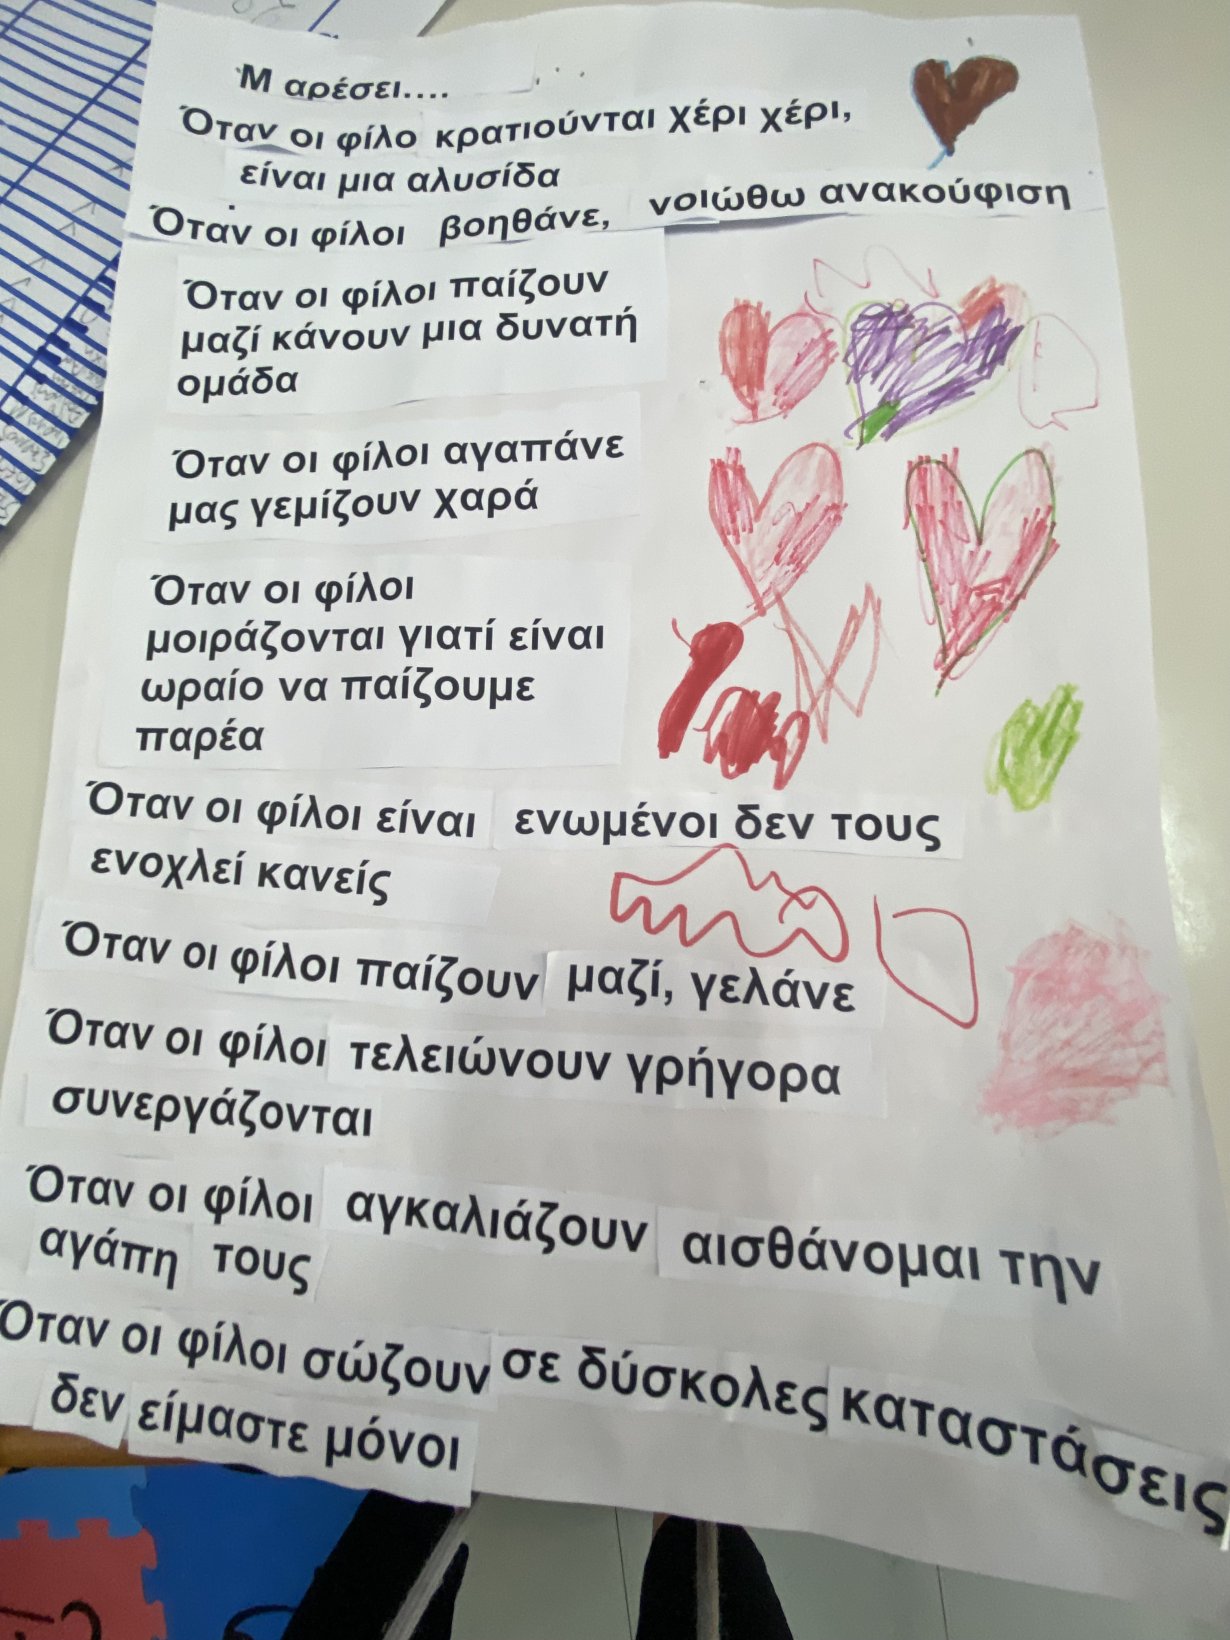 Μ αρέσει....
Όταν οι φίλο κρατιούνται χέρι χέρι,
είναι μια αλυσίδα
Όταν οι φίλοι βοηθάνε, νοιώθω ανακούφιση
Όταν οι φίλοι παίζουν
μαζί κάνουν μια δυνατή
ομάδα
Όταν οι φίλοι αγαπάνε
μας γεμίζουν χαρά
Όταν οι φίλοι
μοιράζονται γιατί είναι
ωραίο να παίζουμε
παρέα
Όταν οι φίλοι είναι ενωμένοι δεν τους
ενοχλεί κανείς
Όταν οι φίλοι παίζουν μαζί, γελάνε
Όταν οι φίλοι τελειώνουν γρήγορα
συνεργάζονται
Όταν οι φίλοι αγκαλιάζουν αισθάνομαι την
αγάπη τους
Όταν οι φίλοι σώζουν σε δύσκολες καταστάσεις
δεν είμαστε μόνοι